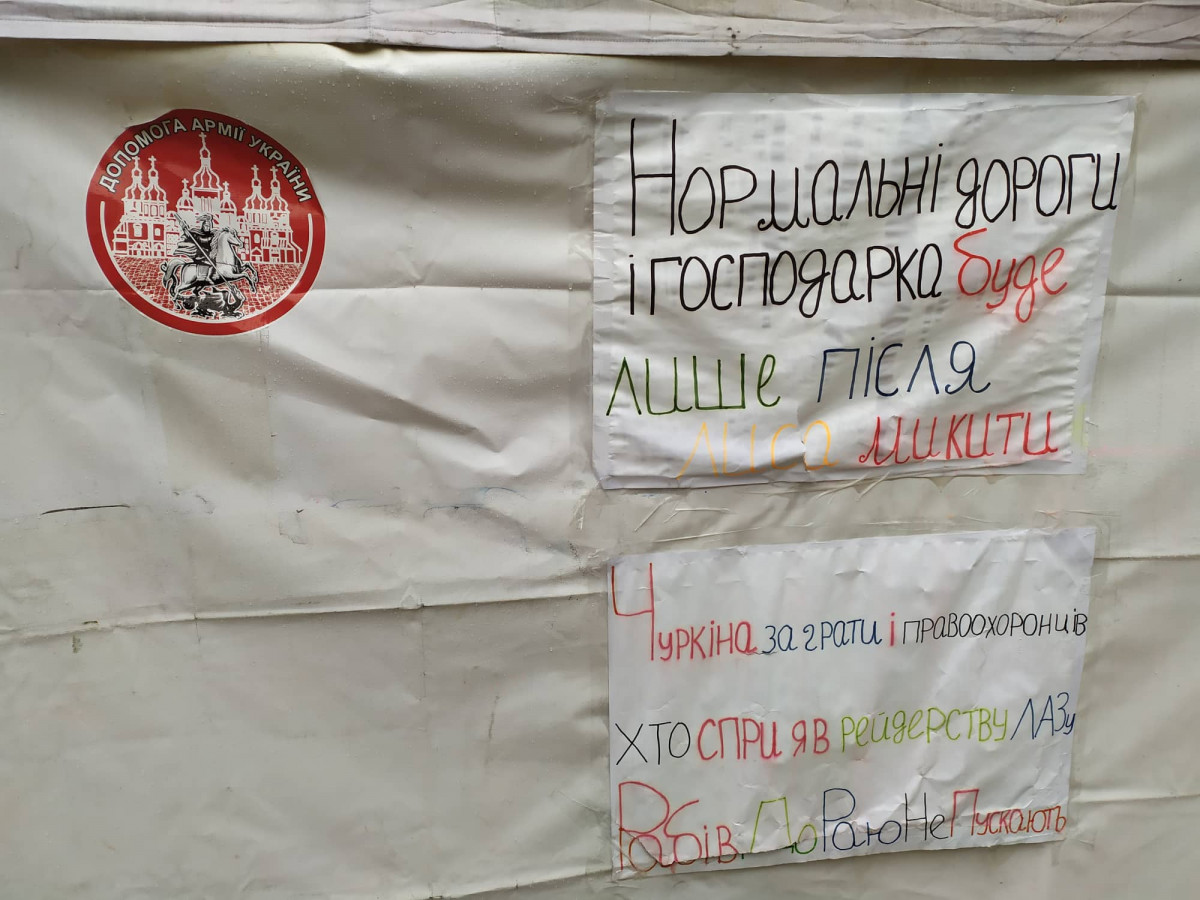 ДОПОМОГА АРМІЇ УКРАЇНИ
Нормальні дороги
і господарка буде
лише після
лиса микити
Чуркіна за грати і правоохоронців
хто сприяв рейдерству ЛАЗу
Рабів До Раю Не Пускають